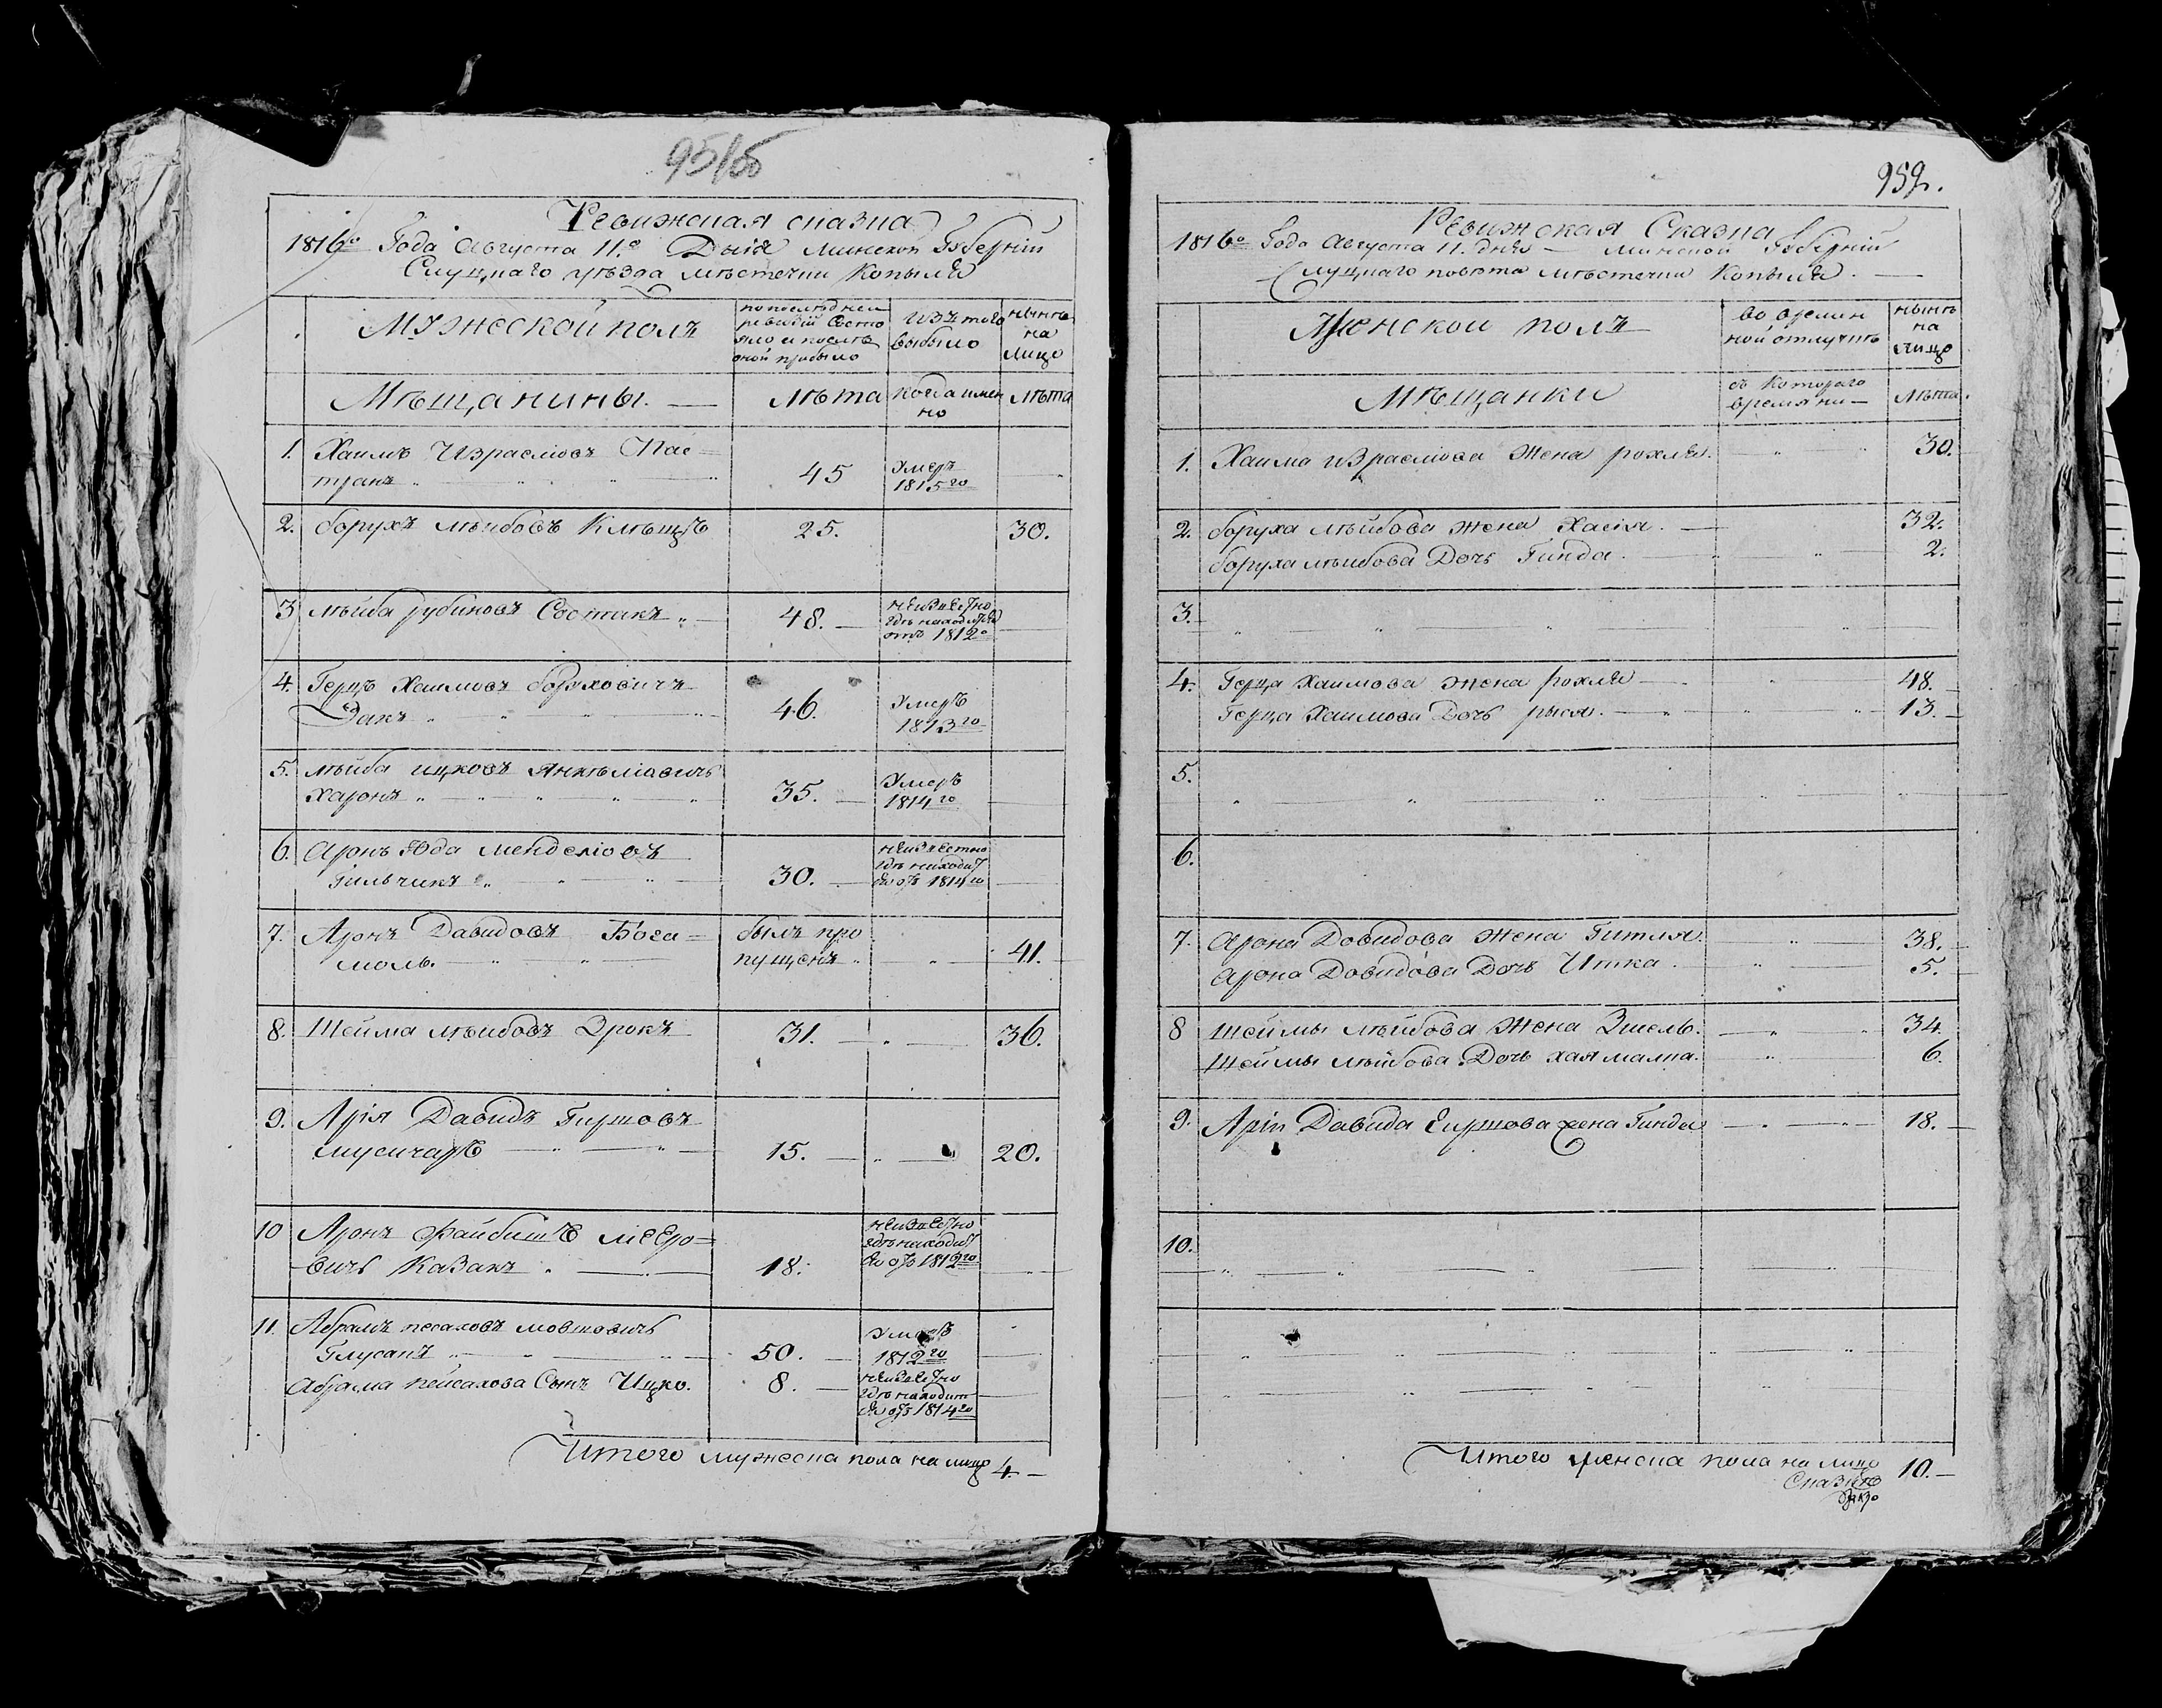 952.
Ревижская сказка
1816го Года Августа 11го Дния Минской Губерній
Слуцкаго уѣзда мѣстечки Копыля
Мужеской полъ
по последней
ревизій состо
яло и послѣ
оной прибыло
Изъ того
выбыло
нынѣ
на
лицо
Мѣщанины.
Лѣта
когда имен
но
Лѣта
1. Хаимъ Израеліовъ Пас=
транъ 45 Умеръ
1815го
2. борухъ лѣибовъ Клѣцъ 25. 30.
3 лѣйба рубиновъ Состакъ 48. неизвестно
гдѣ находится
отъ 1812го
4. Герцъ Хаимовъ боруховичъ
Закъ 46. Умеръ
1813го
5. лѣйба ицковъ Янкѣліовичъ
Харонъ 35. Умеръ
1814го
6. Аронъ Юда менделіовъ
Гильчикъ 30. неизвестно
гдѣ находит
ся отъ 1814го
7. Аронъ Давидовъ Бога=
моль. былъ про
пущенъ 41.
8. Шейма лѣибовъ Эрокъ 31. 36.
9. Арія Давидъ Гиршовъ
мусичаръ 15. 20.
10 Аронъ Файбишъ меero=
вичъ Казакъ 18. неизвестно
гдѣ находит
ся отъ 1812го
11. Абрамъ песаховъ мовшовичъ
Глусанъ 50. Умеръ
1812го
Абрама пейсахова Сынъ Ицко. 8. неизвестно
гдѣ находит
ся отъ 1814го
Итого мужеска пола на лицо 4.
Ревижская Сказка
1816го Года Августа 11. дня Минской Губерній
Слуцкаго повѣта мѣстечки Копыля.
Женской полъ
во времян
ной отлучкѣ
нынѣ
на
лицо
Мѣщанки
съ котораго
времяни
Лѣта.
1. Хаима израеліова жена рохля. 30.
2. боруха лѣйбова жена Хасія. 32.
боруха лѣибова Дочь Гинда. 2.
3.
4. Герца Хаимова жена рохля 48.
Герца Хаимова Дочь рыся. 13.
5.
6.
7. Арона Довидова жена Гитля. 38.
Арона Довидова Дочь Итка. 5.
8 Шеймы лѣйбова жена Эшель. 34.
Шеймы лѣйбова Дочь хая малка. 6.
9. Арін Давида Гиршова жена Гинда 18.
10.
Итого женска пола на лицо 10.